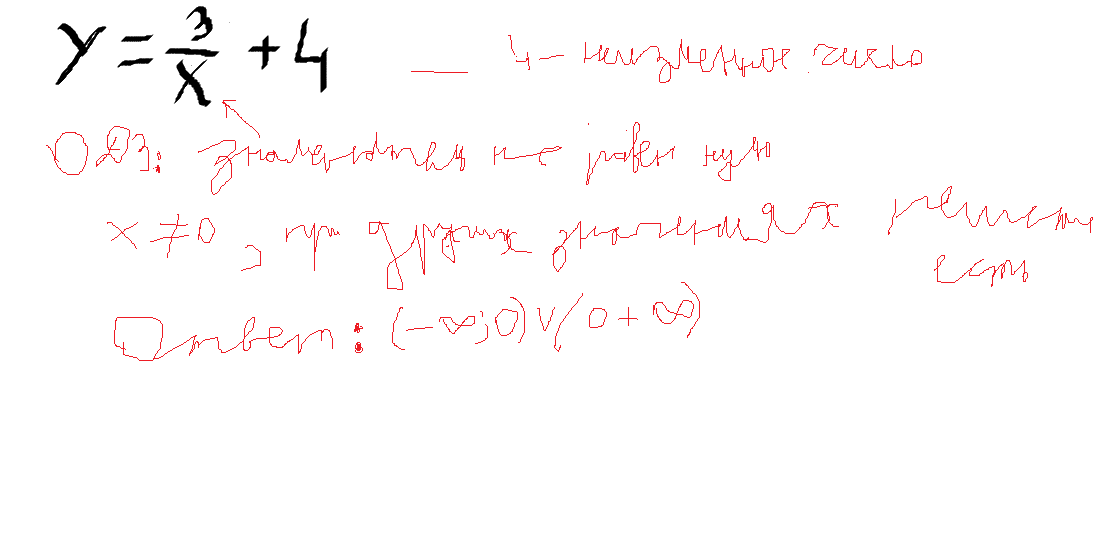 y = 3/x + 4 — 4 - неизменное число
ОДЗ: знаменатель не равен нулю
x ≠ 0, при других значениях решение
есть
Ответ: (-∞; 0) ∨ (0 + ∞)